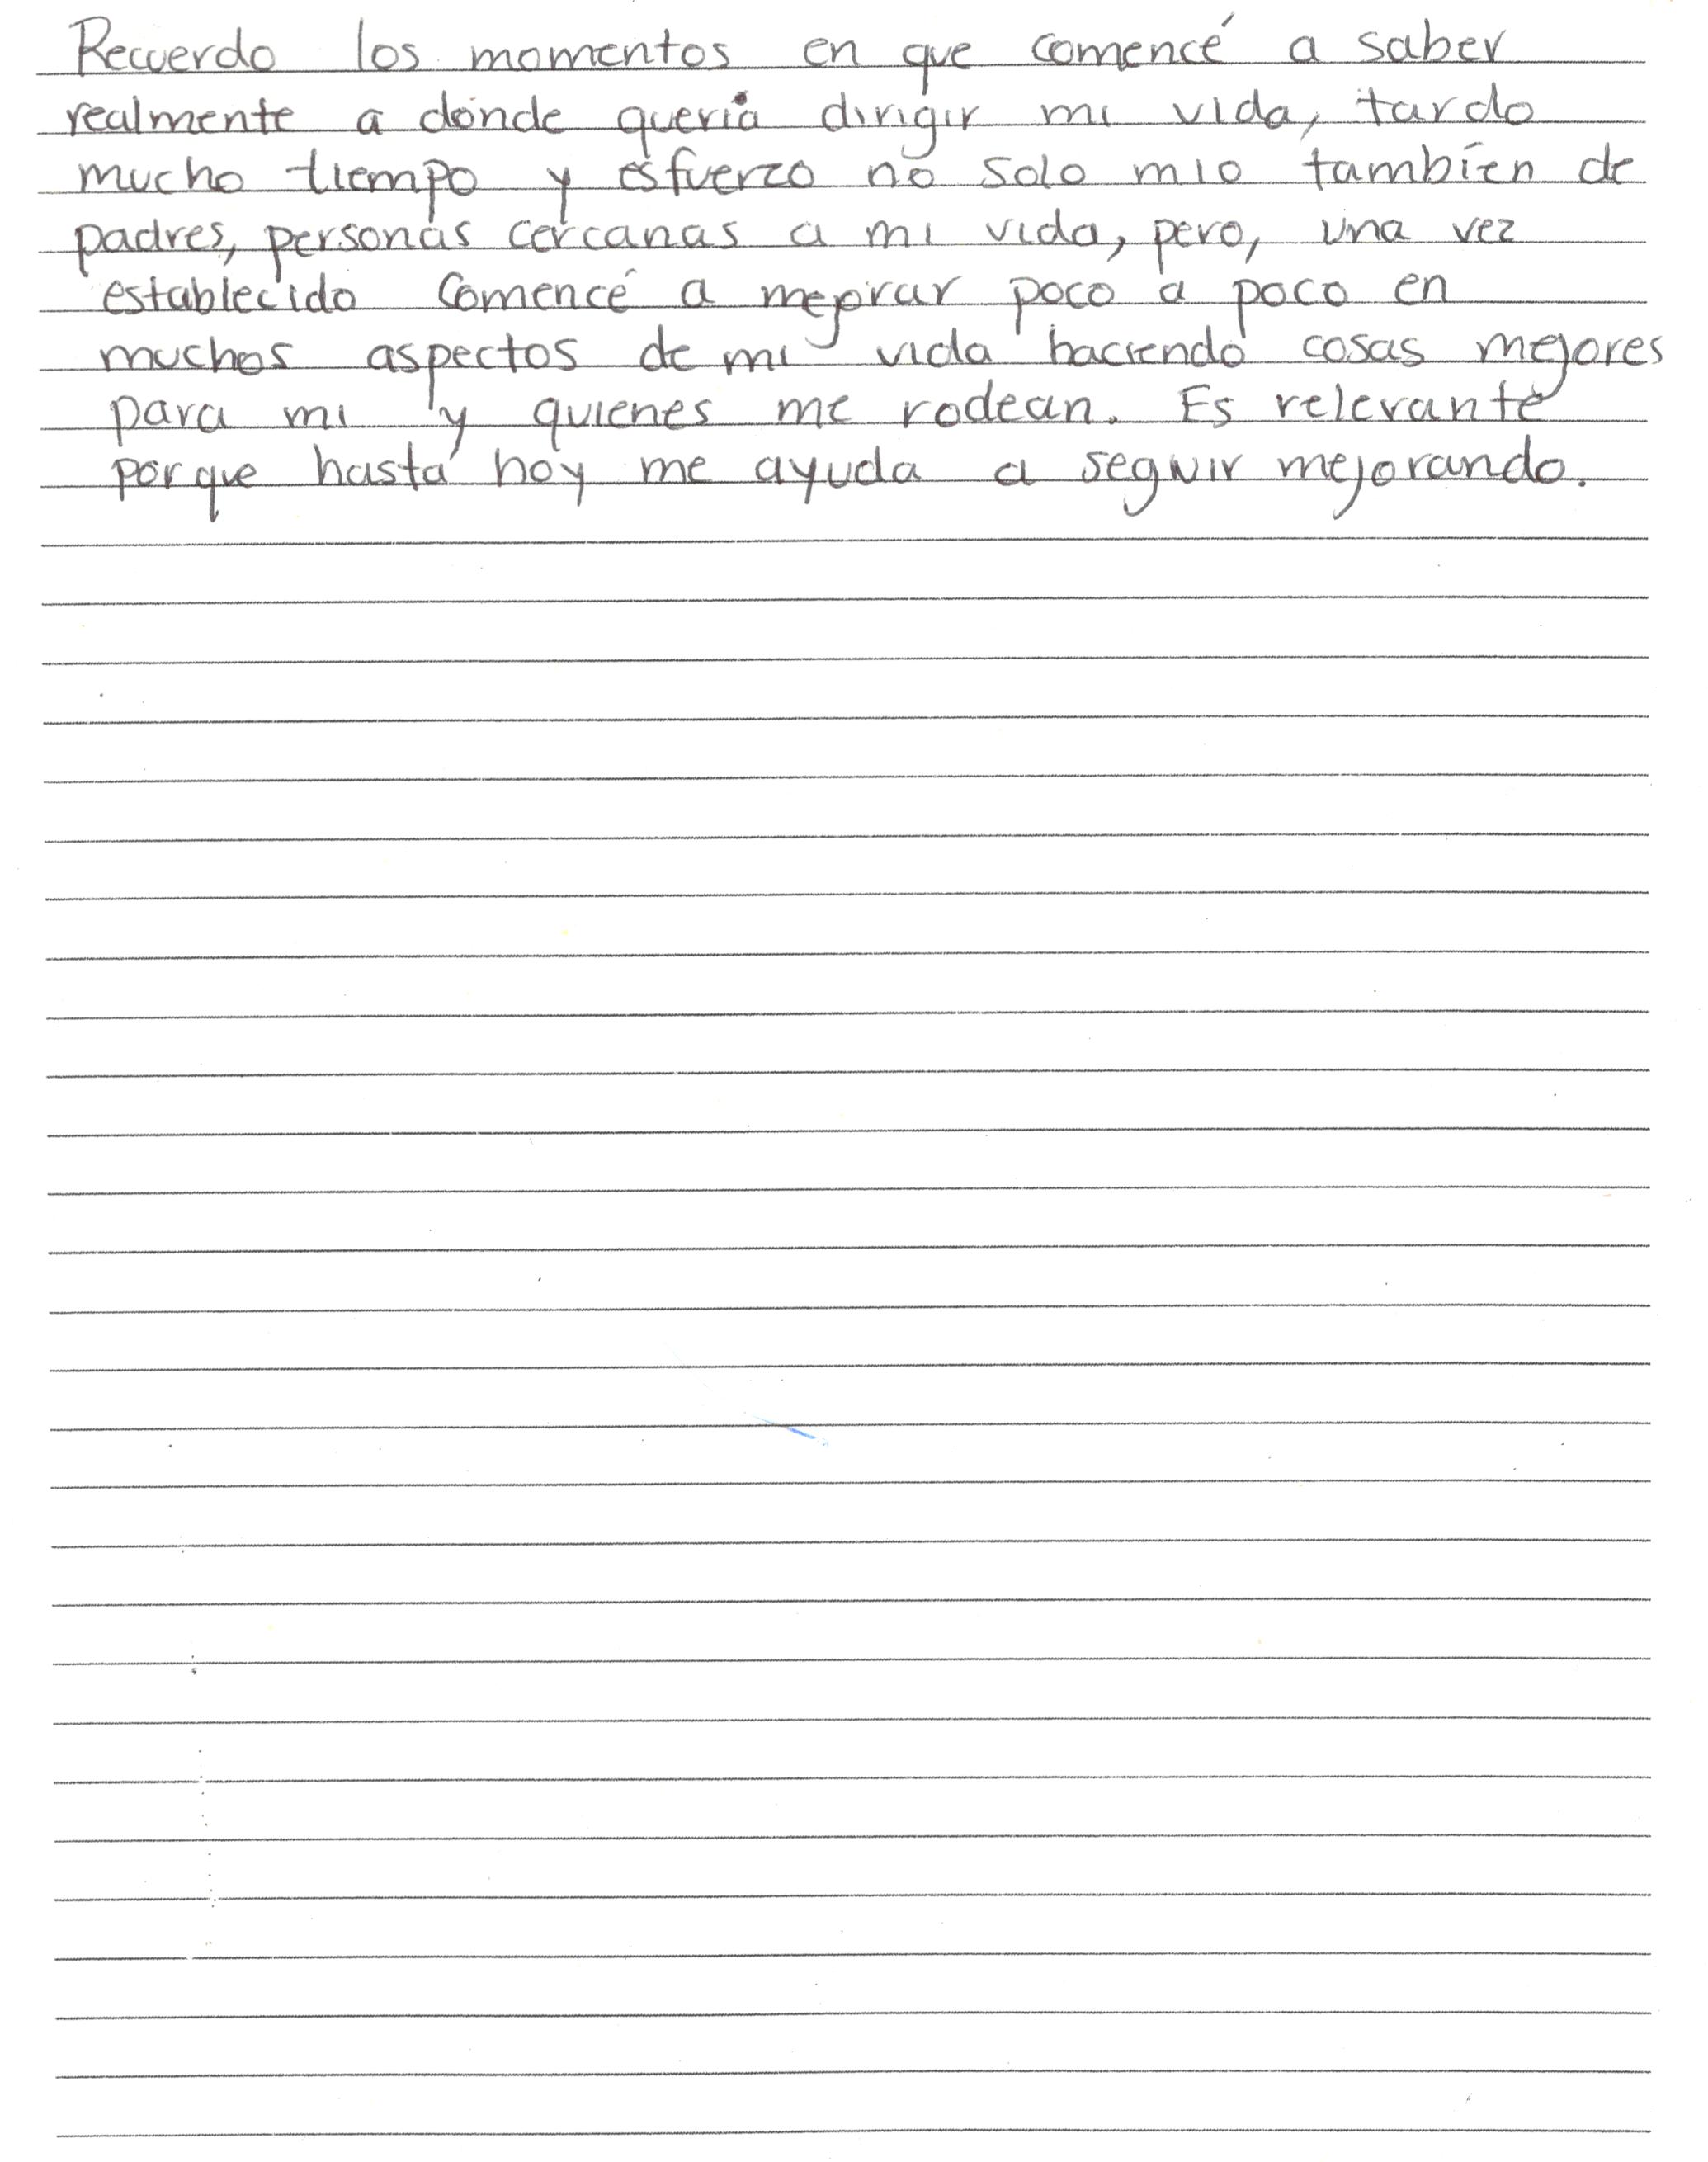 Recuerdo los momentos en que comencé a saber
realmente a donde quería dirigir mi vida, tardo
mucho tiempo y esfuerzo no solo mio tambien de
padres, personas cercanas a mi vida, pero, una vez
establecido comencé a mejorar poco a poco en
muchos aspectos de mi vida haciendo cosas mejores
para mi y quienes me rodean. Es relevante
porque hasta hoy me ayuda a seguir mejorando.